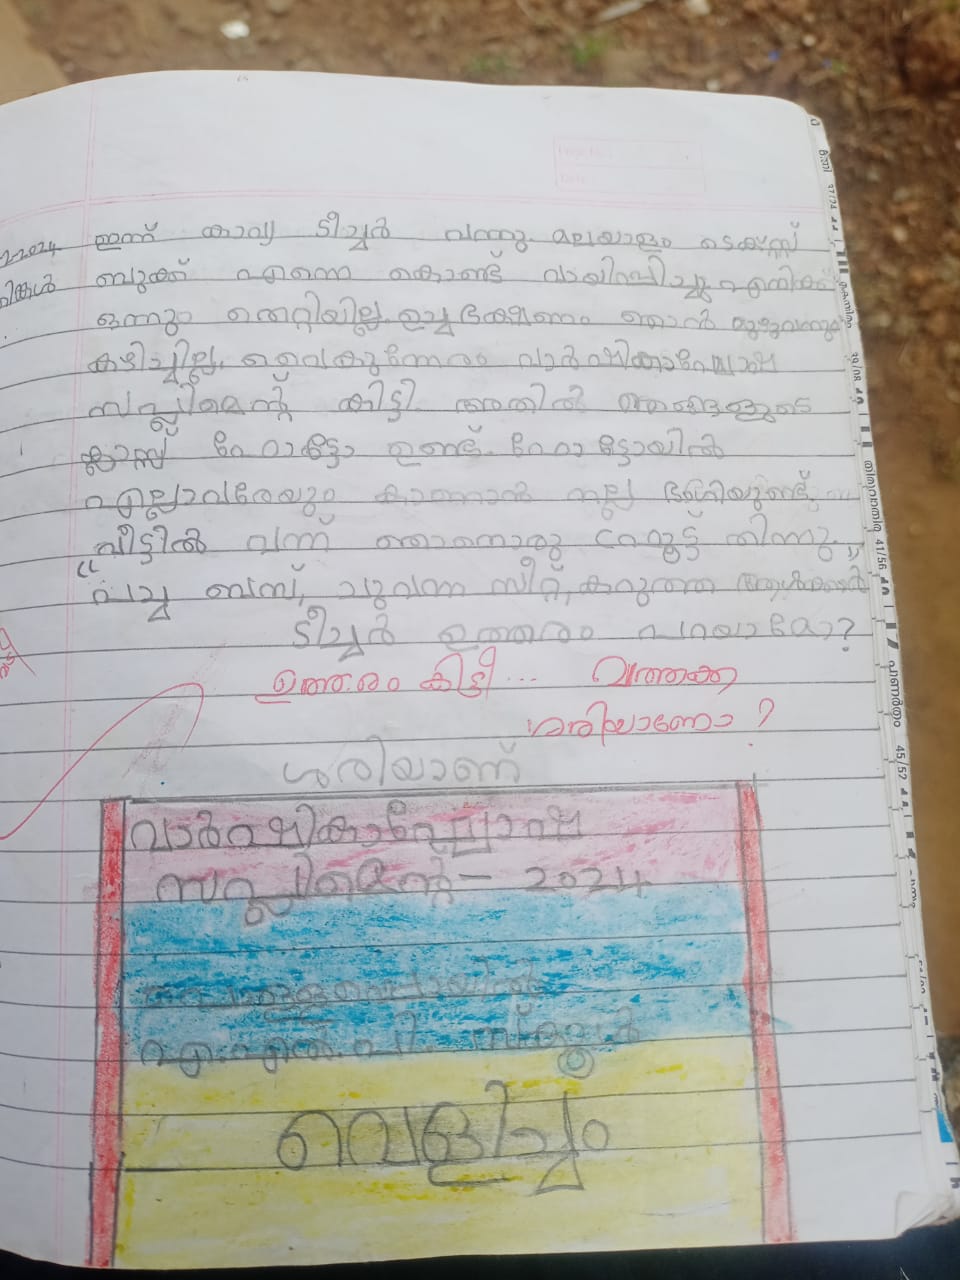 2024 ഇന്ന് കാവ്യ ടീച്ചർ വന്നു മലയാളം ടെക്സ്റ്റ്
ബുക്ക് എന്നെ കൊണ്ട് വായിപ്പിച്ചു എനിക്ക്
ഒന്നും തെറ്റിയില്ല. ഉച്ച ഭക്ഷണം ഞാൻ മുഴുവനും
കഴിച്ചില്ല. വൈകുന്നേരം വാർഷികാഘോഷ
സപ്ലിമെന്റ് കിട്ടി. അതിൽ ഞങ്ങളുടെ
ക്ലാസ്സ് ഫോട്ടോ ഉണ്ട്. ഫോട്ടോയിൽ
എല്ലാവരേയും കാണാൻ നല്ല ഭംഗിയുണ്ട്.
വീട്ടിൽ വന്ന് ഞാനൊരു ഫ്രൂട്ട് തിന്നു.
"പച്ച ബസ്, ചുവന്ന സീറ്റ്, കറുത്ത ആൾക്കാർ"
ടീച്ചർ ഉത്തരം പറയാമോ?
ഉത്തരം കിട്ടീ... വത്തക്ക
ശരിയാണോ?
ശരിയാണ്
വാർഷികാഘോഷ
സപ്ലിമെന്റ് - 2024
എ.എൽ.പി സ്കൂൾ
വെളിച്ചം